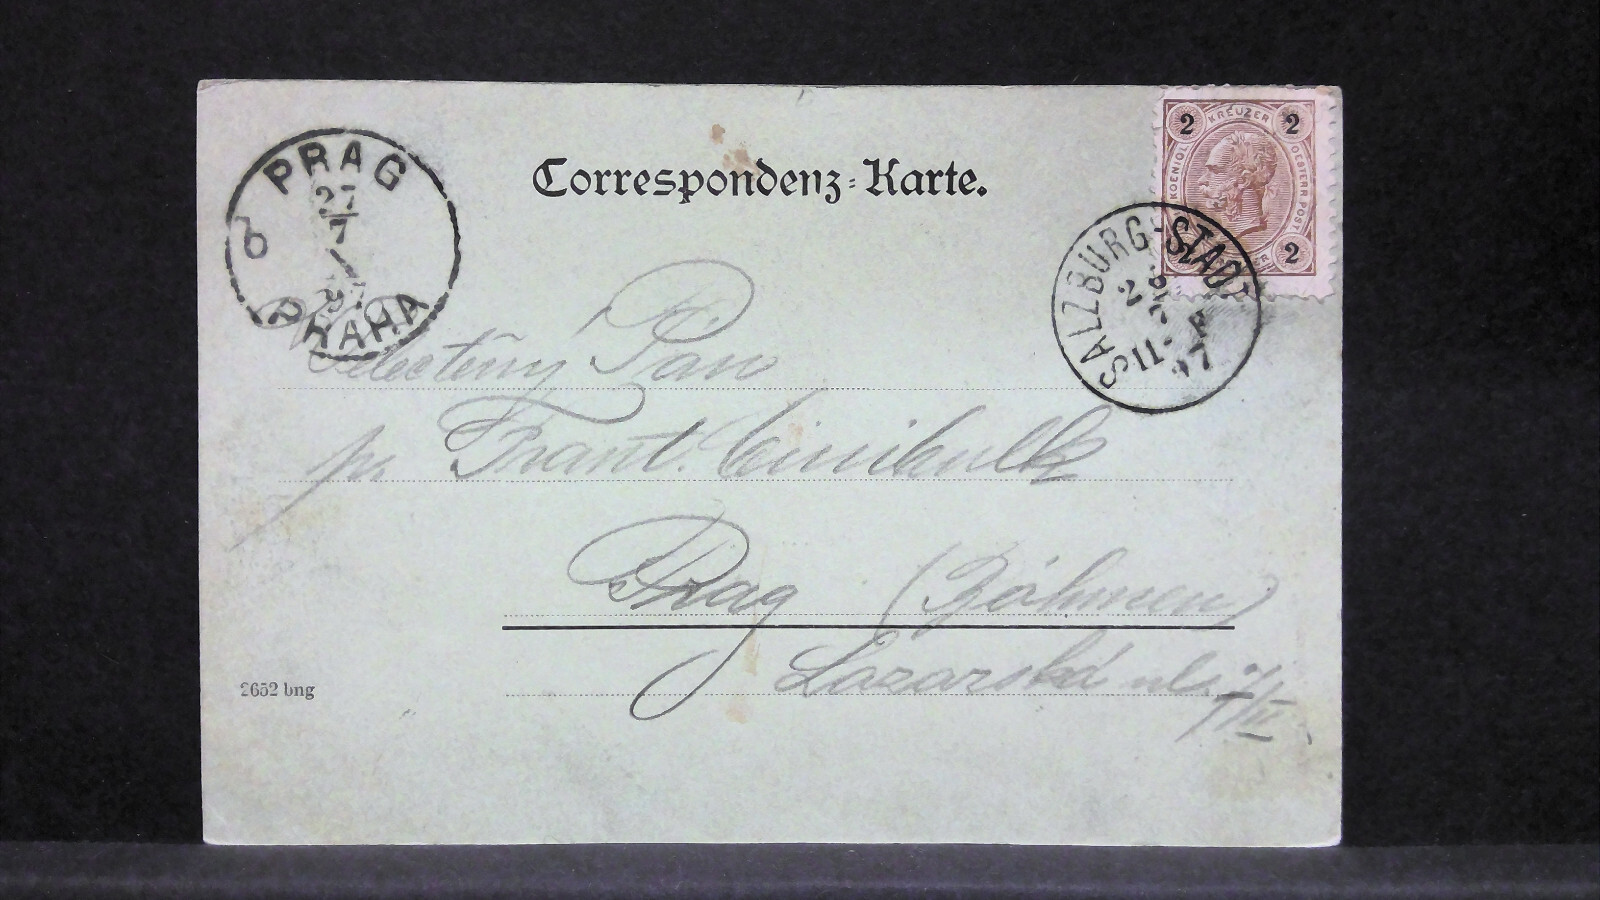 PRAG
27
7
6
PRAHA
Correspondenz-Karte.
2 KREUZER 2
KOENIGL OESTERR POST
2
SALZBURG-STADT
11-
97
Pan
Frant. Cinibulk
Prag (Böhmen)
Lazarská ul.
2652 bng